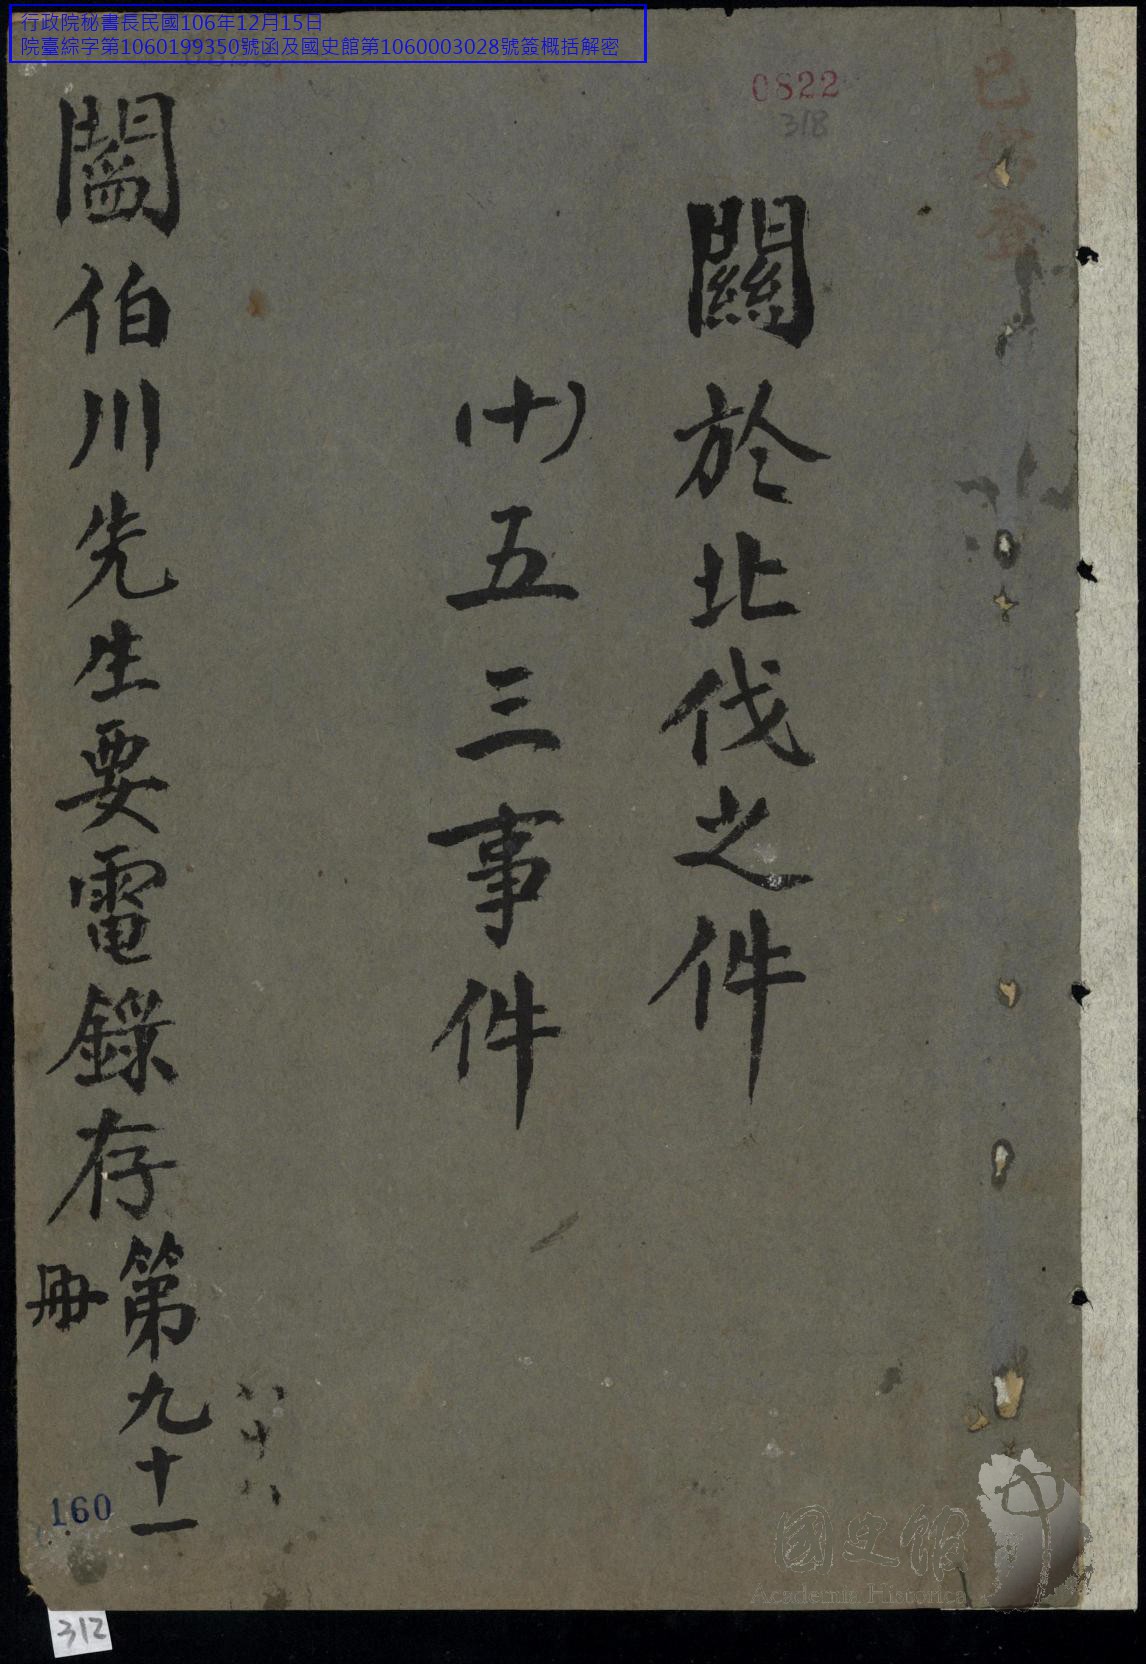 行政院秘書長民國106年12月15日
院臺綜字第1060199350號函及國史館第1060003028號簽概括解密
0822
318
關於北伐之件
(十)五三事件
閻伯川先生要電錄存第九十一冊
八十八
160
312
國史館
Academia Historica